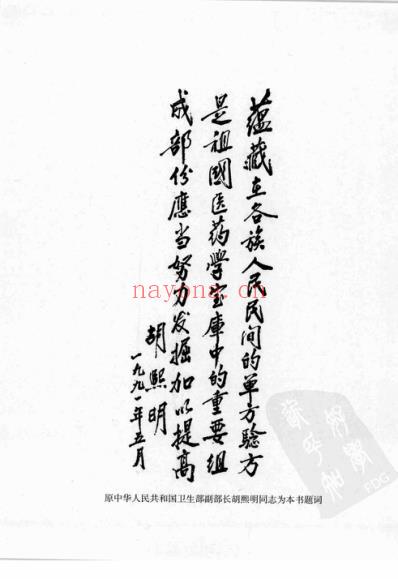 蕴藏在各族人民民间的单方验方
是祖國医药學宝庫中的重要组
成部份應当努力发掘加以提高
胡熙明
一九九一年五月
nayona.cn
原中华人民共和国卫生部副部长胡熙明同志为本书题词
PDG